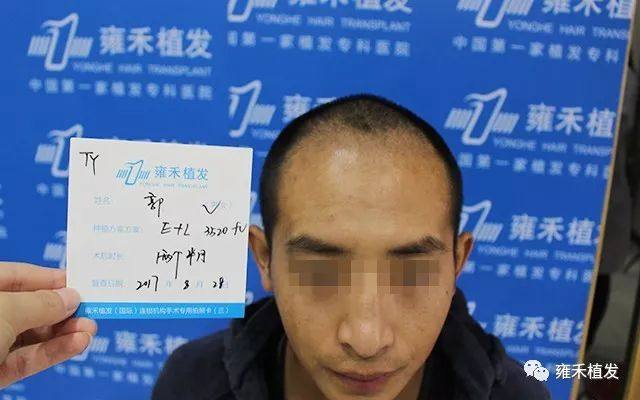 雍禾植发
YONGHE HAIR TRANSPLANT
中国第一家植发专科医院
雍禾植发
YONGHE HAIR TRANSPLANT
中国第一家植发专科医院
雍禾植发
中国第一家植发
TY
雍禾植发
YONGHE HAIR TRANSPLANT
姓名: 郭
种植方案方案: E+L 3520 FU
术后时长: 两个半月
复查日期: 2017 年 8 月 28 日
雍禾植发(国际)连锁机构手术专用拍照卡(三)
雍禾植发